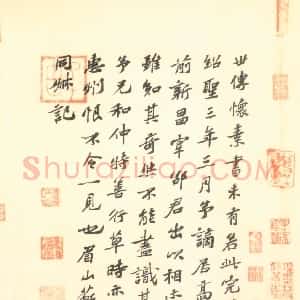 世傳懷素書未有若此完
紹聖三年三月予謫居高
前新昌宰邵君出以相示
雖知其奇然不能盡識其
予兄和仲特善行草時亦
惠州恨不令一見也眉山蘇
同叔記
Shufaziliao.com